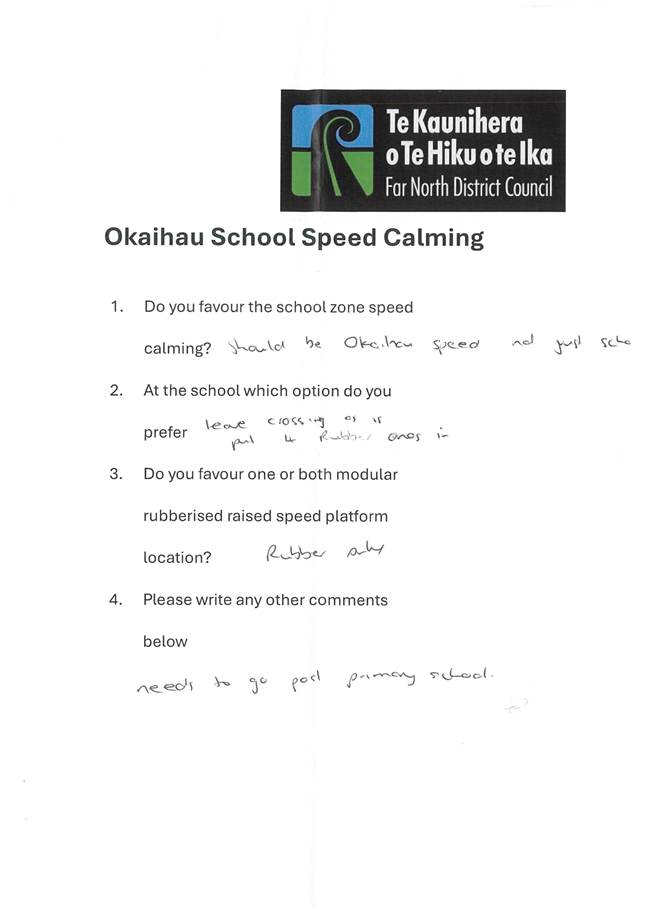 Te Kaunihera
o Te Hiku o te Ika
Far North District Council
Okaihau School Speed Calming
1. Do you favour the school zone speed
calming? should be Okaihau speed not just scho
2. At the school which option do you
prefer leave crossing as is
put 4 Rubber ones in
3. Do you favour one or both modular
rubberised raised speed platform
location? Rubber only
4. Please write any other comments
below
needs to go past primary school.